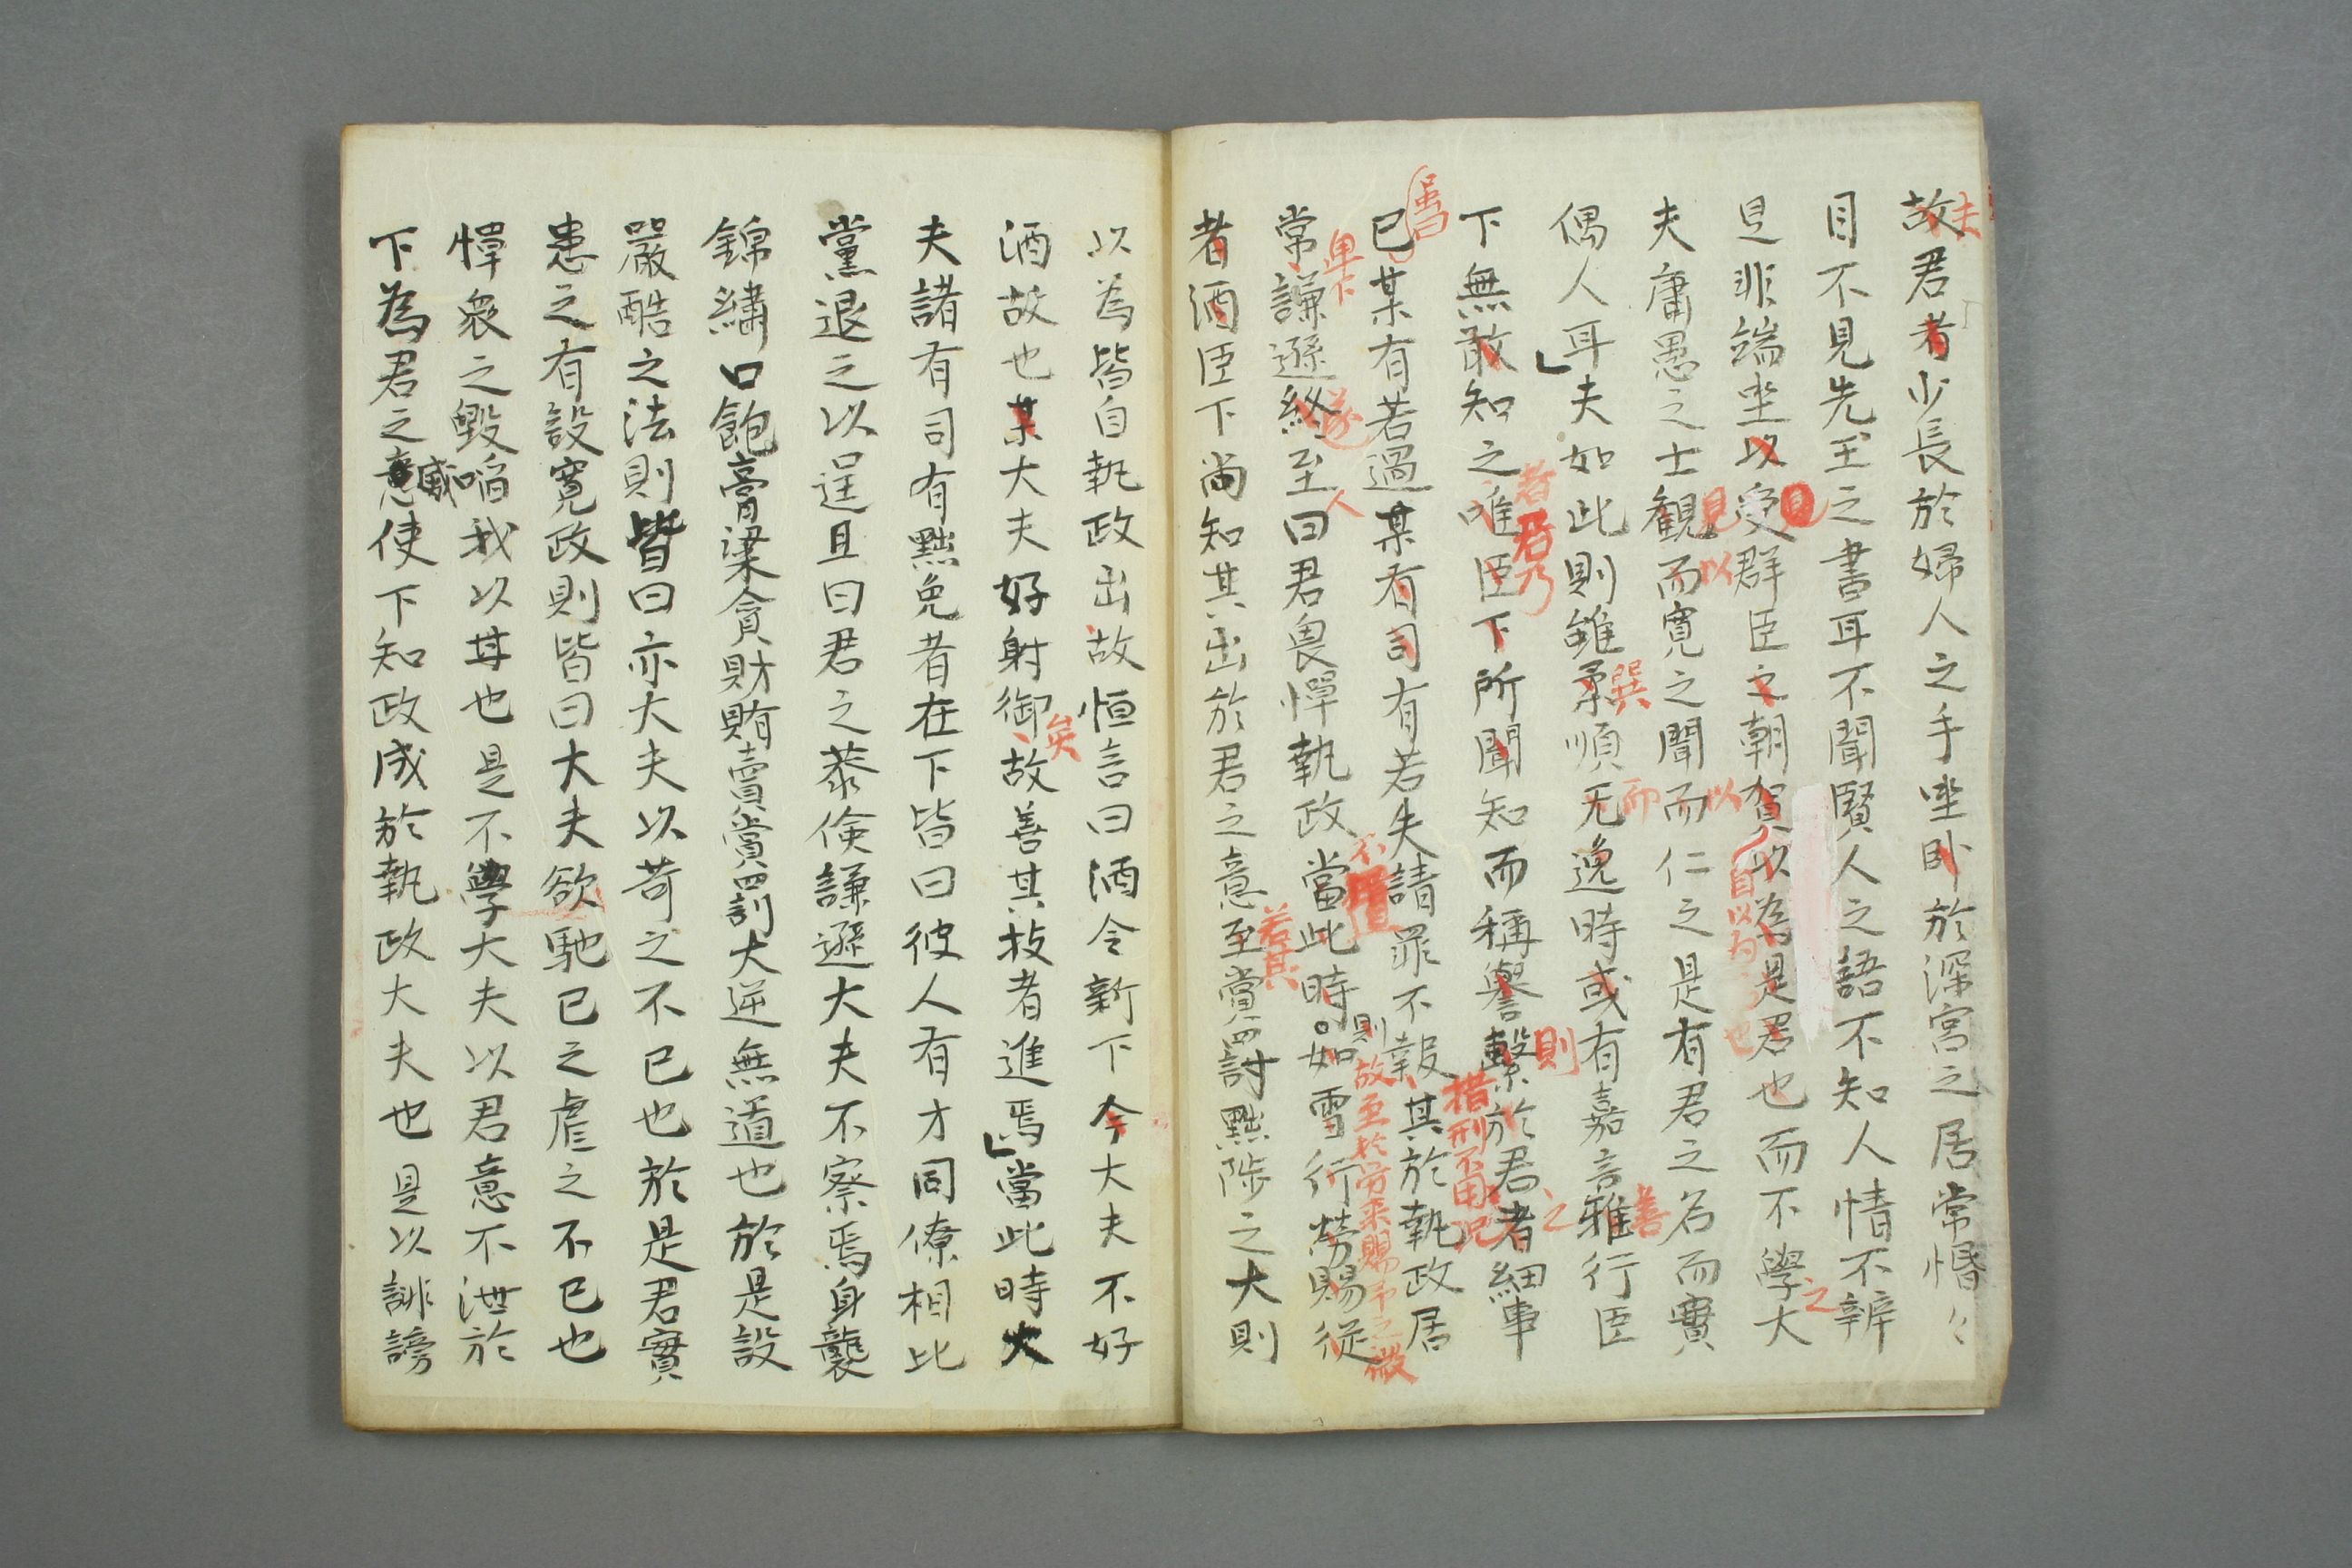 故君者少長於婦人之手坐卧於深宮之居常惛々
夫
目不見先王之書耳不聞賢人之語不知人情不辨
是非端坐以受群臣之朝賀以為是君也而不學大
見
自以為
也
之
夫庸愚之士觀而寛之聞而仁之是有君之名而實
見以
以
偶人耳夫如此則雖柔順无逸時或有嘉言雅行臣
巽
而
善
下無敢知之唯臣下所聞知而稱譽繫於君者細事
者君乃
則
之
已某有若過某有司有若失請罪不報其於執政居
措刑不用況
常謙遜終至曰君畏憚執政當此時如雪行勞賜從
卑下
遂
人
不
則故至於勞來賜予之微
者酒臣下尚知其出於君之意至賞罰討黜陟之大則
若其
以為皆自執政出故恒言曰酒令新下今大夫不好
酒故也某大夫好射御故善其技者進焉當此時大
矣
夫諸有司有黜免者在下皆曰彼人有才同僚相比
黨退之以逞且曰君之恭儉謙遜大夫不察焉身襲
錦繡口飽膏粱貪財賄賣賞罰大逆無道也於是設
嚴酷之法則皆曰亦大夫以苛之不已也於是君實
患之有設寛政則皆曰大夫欲馳已之虐之不已也
憚衆之毀啗我以耳也是不學大夫以君意不泄於
下為君之意使下知政成於執政大夫也是以誹謗
威